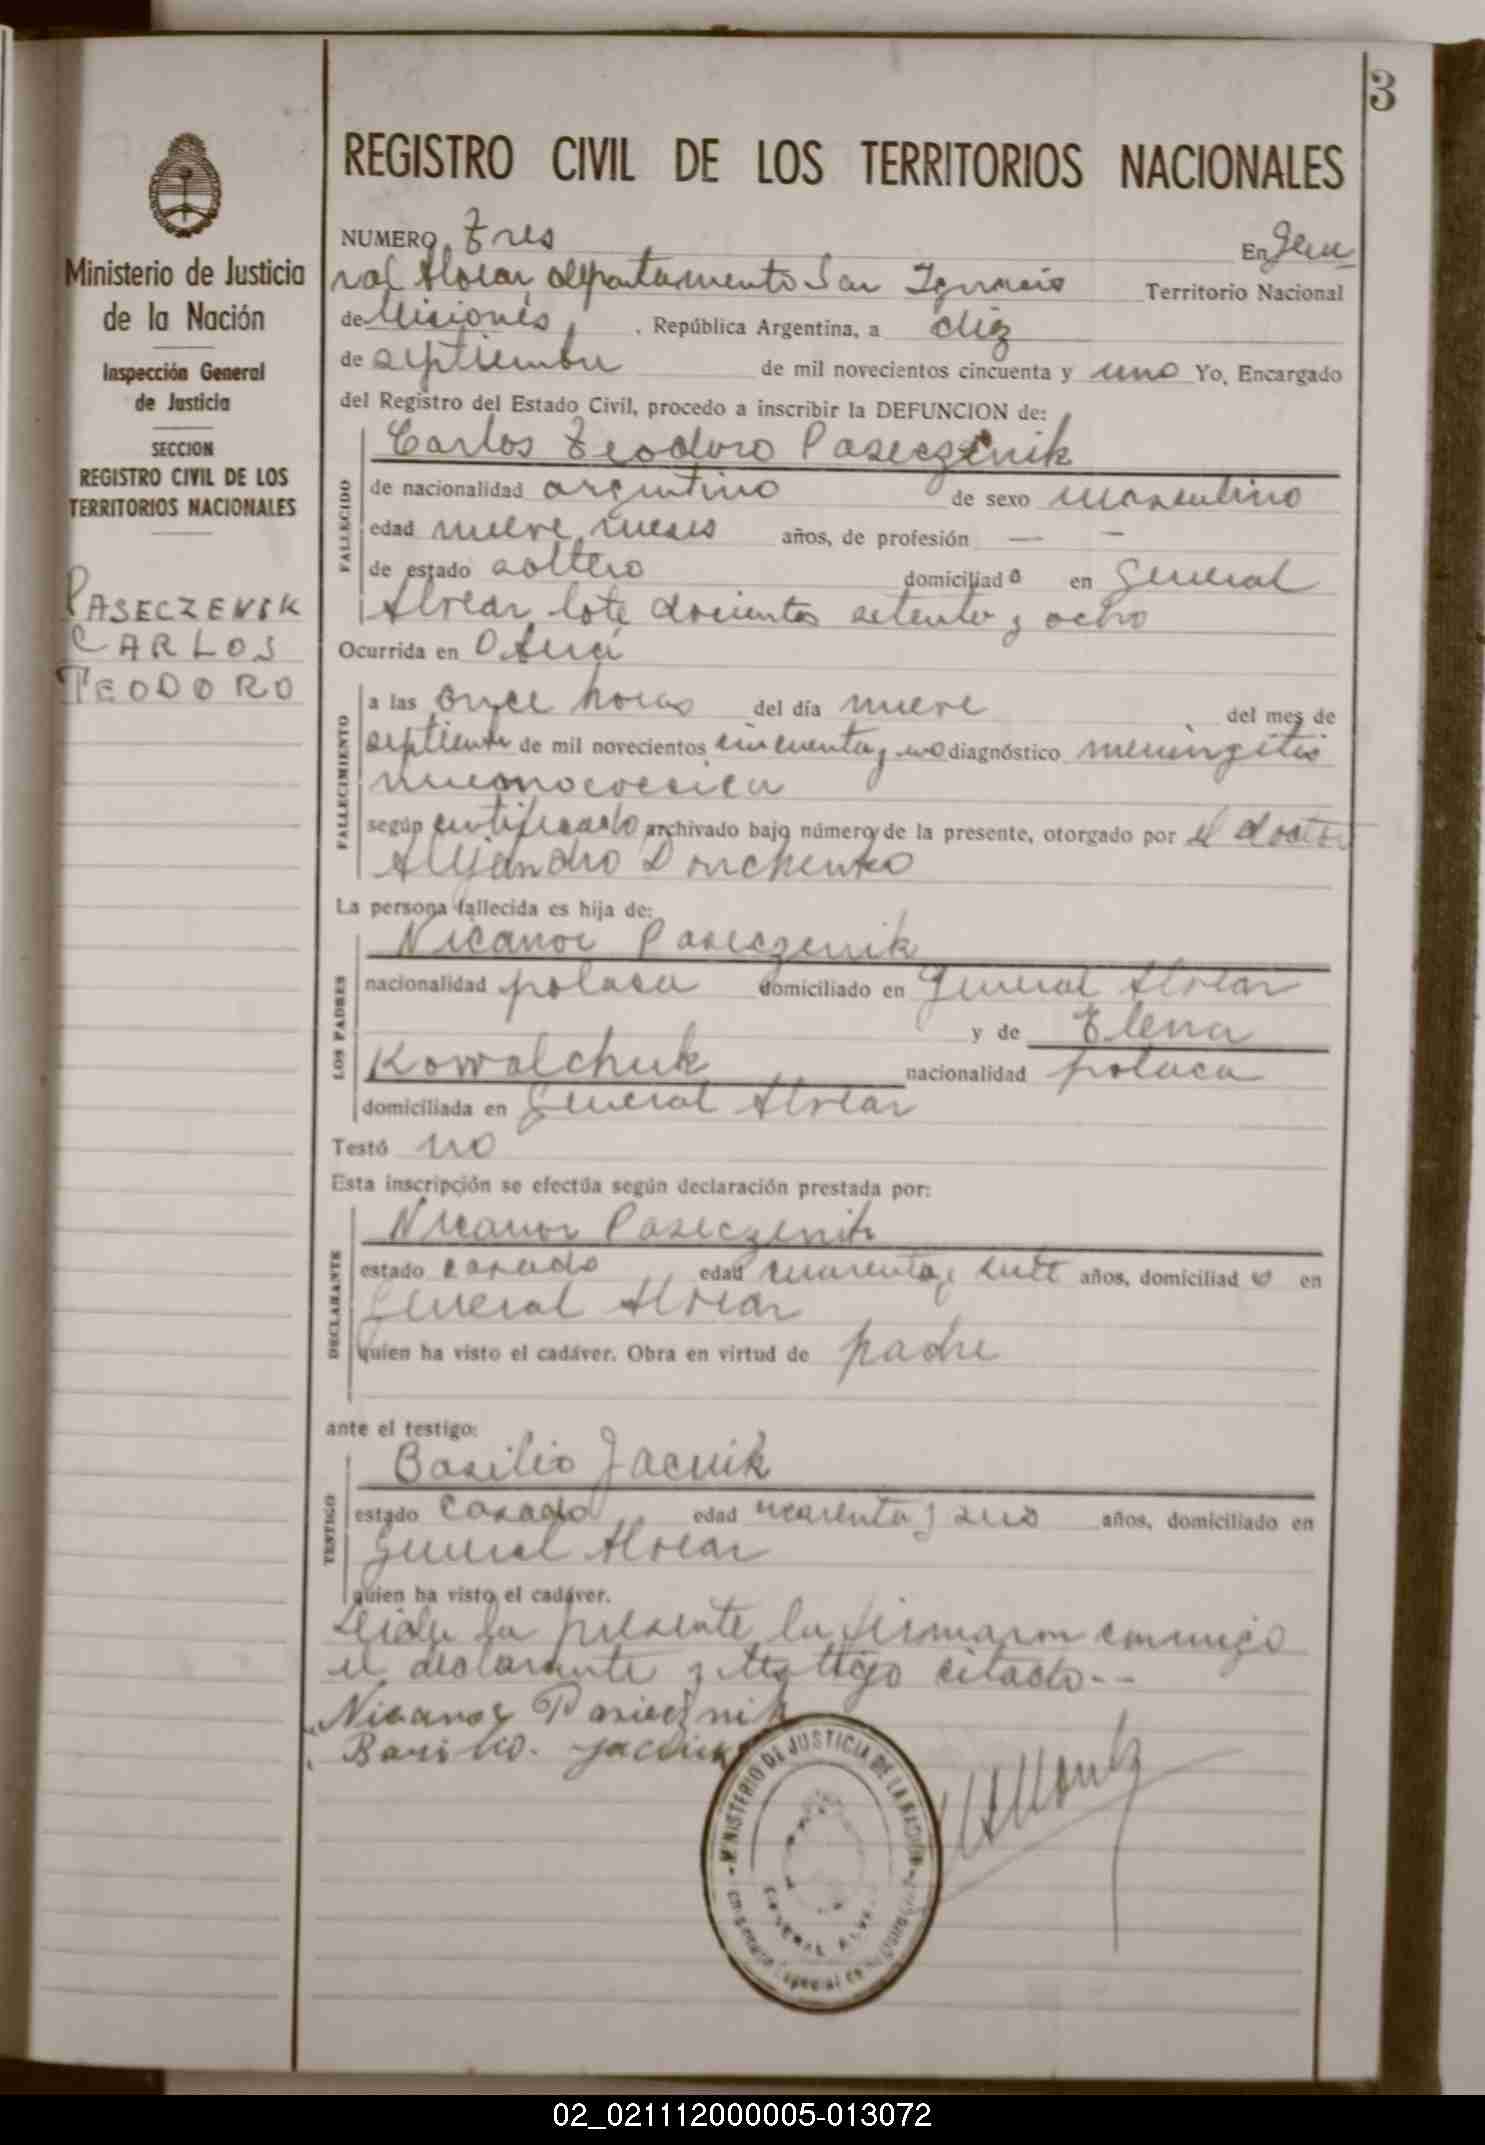 3
REGISTRO CIVIL DE LOS TERRITORIOS NACIONALES
Ministerio de Justicia
de la Nación
Inspección General
de Justicia
SECCION
REGISTRO CIVIL DE LOS
TERRITORIOS NACIONALES
PASECZENIK
CARLOS
TEODORO
NUMERO tres En Gene
ral Alvear departamento San Ignacio Territorio Nacional
de Misiones, República Argentina, a diez
de septiembre de mil novecientos cincuenta y uno Yo, Encargado
del Registro del Estado Civil, procedo a inscribir la DEFUNCION de:
FALLECIDO
Carlos Teodoro Paseczenik
de nacionalidad argentino de sexo masculino
edad nueve meses años, de profesión — —
de estado soltero domiciliado en General
Alvear lote docientos setenta y ocho
Ocurrida en Oberá
FALLECIMIENTO
a las once horas del día nueve del mes de
septiembre de mil novecientos cincuenta y uno diagnóstico meningitis
neumococcica
según certificado archivado bajo número de la presente, otorgado por el doctor
Alejandro Donchenko
La persona fallecida es hija de:
LOS PADRES
Nicanor Paseczenik
nacionalidad polaca domiciliado en General Alvear
y de Elena
Kowalchuk nacionalidad polaca
domiciliada en General Alvear
Testó no
Esta inscripción se efectúa según declaración prestada por:
DECLARANTE
Nicanor Paseczenik
estado casado edad cuarenta y siete años, domiciliado en
General Alvear
quien ha visto el cadáver. Obra en virtud de padre
ante el testigo:
TESTIGO
Basilio Jacnik
estado casado edad cuarenta y años, domiciliado en
General Alvear
quien ha visto el cadáver.
Leida la presente la firmaron conmigo
el declarante y testigo citado--
Nicanor Pasiecznik
Basilio. Jacnik
MINISTERIO DE JUSTICIA DE LA NACION
GENERAL ALVEAR
02_021112000005-013072